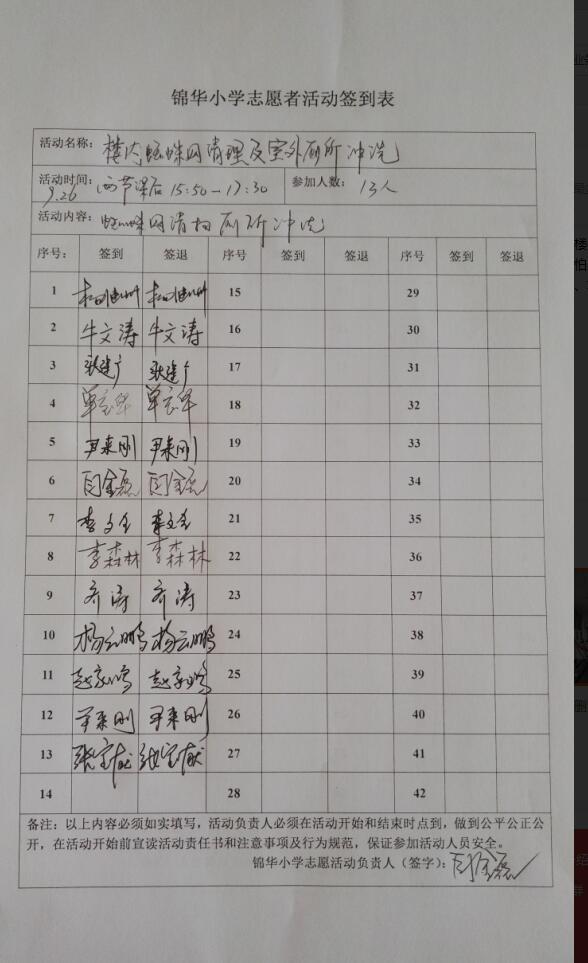 锦华小学志愿者活动签到表
活动名称: 楼内蜘蛛网清理及室外厕所冲洗
活动时间: 9.26 两节课后 15:50-17:30 参加人数: 13人
活动内容: 蜘蛛网清扫 厕所冲洗
序号: 签到 签退 序号 签到 签退 序号 签到 签退
1 15 29
2 牛文涛 牛文涛 16 30
3 耿建广 耿建广 17 31
4 单宏华 单宏华 18 32
5 尹来刚 尹来刚 19 33
6 闫金磊 闫金磊 20 34
7 李文全 李文全 21 35
8 李森林 李森林 22 36
9 齐涛 齐涛 23 37
10 杨云鹏 杨云鹏 24 38
11 赵家鸣 赵家鸣 25 39
12 尹来刚 尹来刚 26 40
13 张宝献 张宝献 27 41
14 28 42
备注: 以上内容必须如实填写，活动负责人必须在活动开始和结束时点到，做到公平公正公
开，在活动开始前宣读活动责任书和注意事项及行为规范，保证参加活动人员安全。
锦华小学志愿活动负责人（签字）: 闫金磊